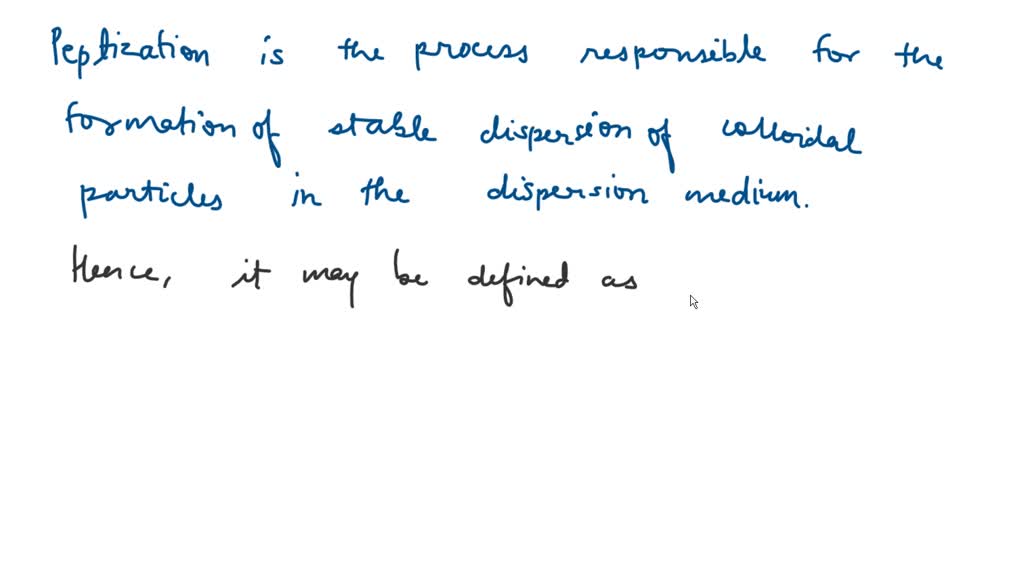 Peptization is the process responsible for the
formation of stable dispersion of colloidal
particles in the dispersion medium.
Hence, it may be defined as